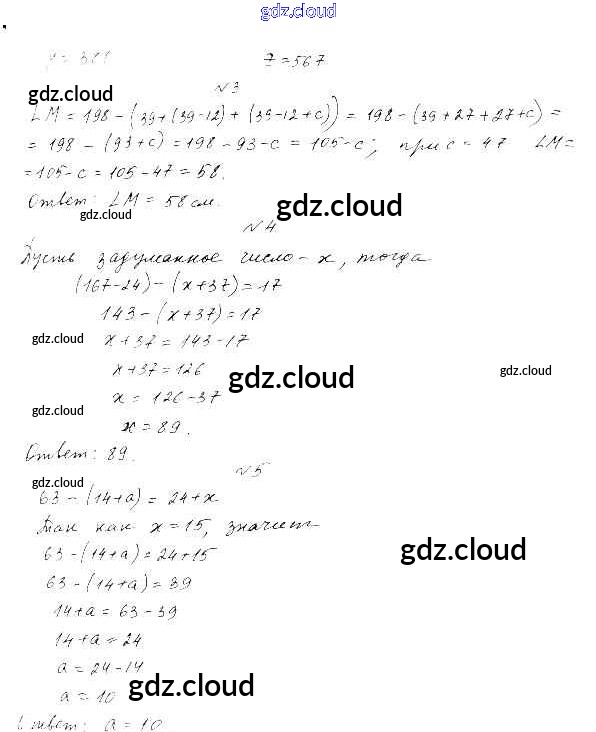 gdz.cloud
y = 311 z = 567
№3
gdz.cloud
LM = 198 - (39 + (39-12) + (39-12+c)) = 198 - (39+27+27+c) =
= 198 - (93+c) = 198 - 93 - c = 105 - c; при c = 47 LM =
= 105 - c = 105 - 47 = 58.
Ответ: LM = 58 см.
gdz.cloud gdz.cloud
№4
Пусть задуманное число - x, тогда
(167-24) - (x+37) = 17
143 - (x+37) = 17
gdz.cloud x + 37 = 143 - 17
x + 37 = 126 gdz.cloud gdz.cloud
x = 126 - 37
gdz.cloud
x = 89.
Ответ: 89.
№5
gdz.cloud
63 - (14+a) = 24 + x
Так как x = 15, значит
63 - (14+a) = 24 + 15 gdz.cloud
63 - (14+a) = 39
14 + a = 63 - 39
14 + a = 24
a = 24 - 14
a = 10 gdz.cloud
Ответ: a = 10